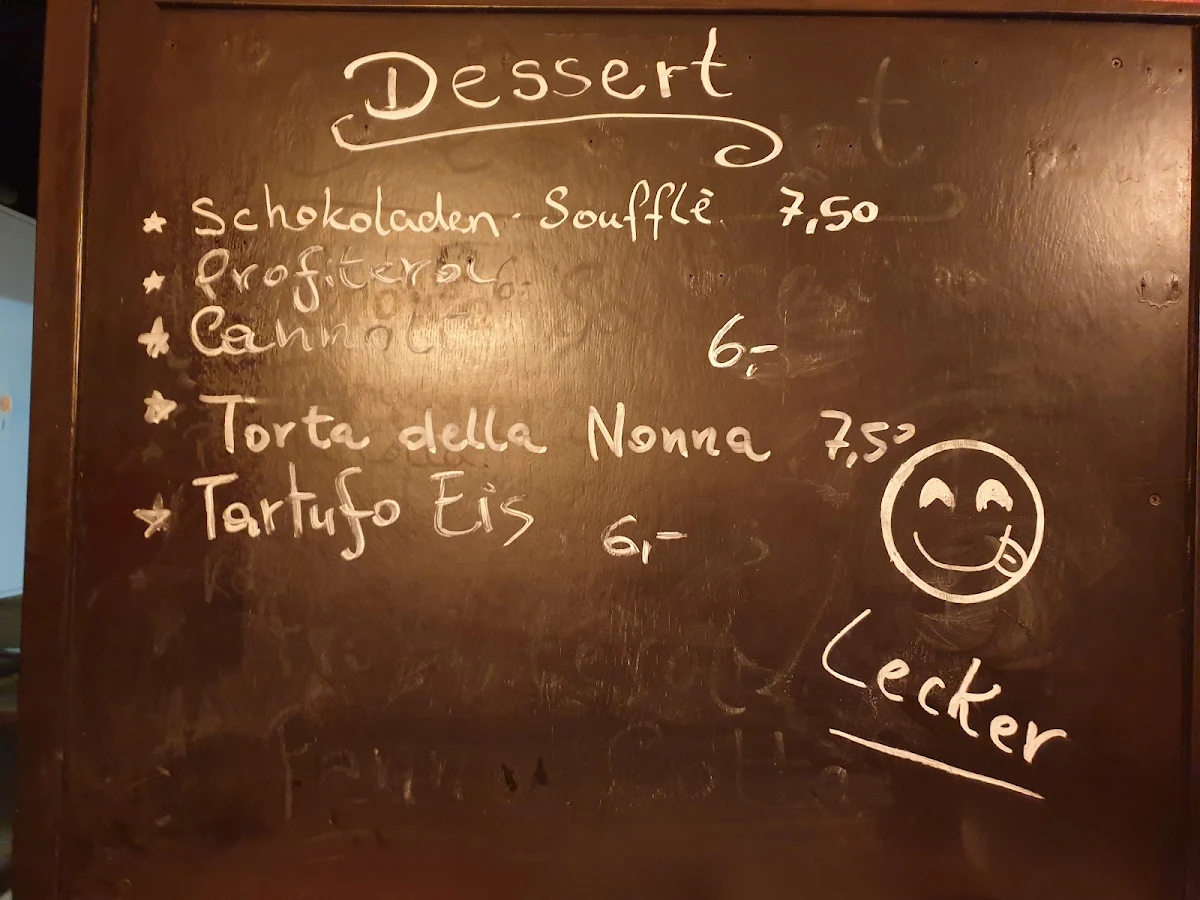 Dessert
* Schokoladen-Soufflè 7,50
* Profiterol 6,-
* Cannoli 6,-
* Torta della Nonna 7,50
* Tartufo Eis 6,-
Lecker